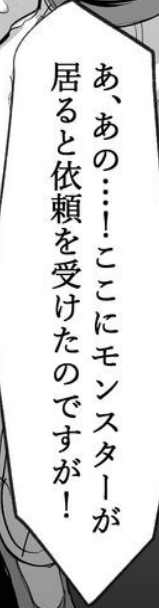 あ、あの…！ここにモンスターが
居ると依頼を受けたのですが！